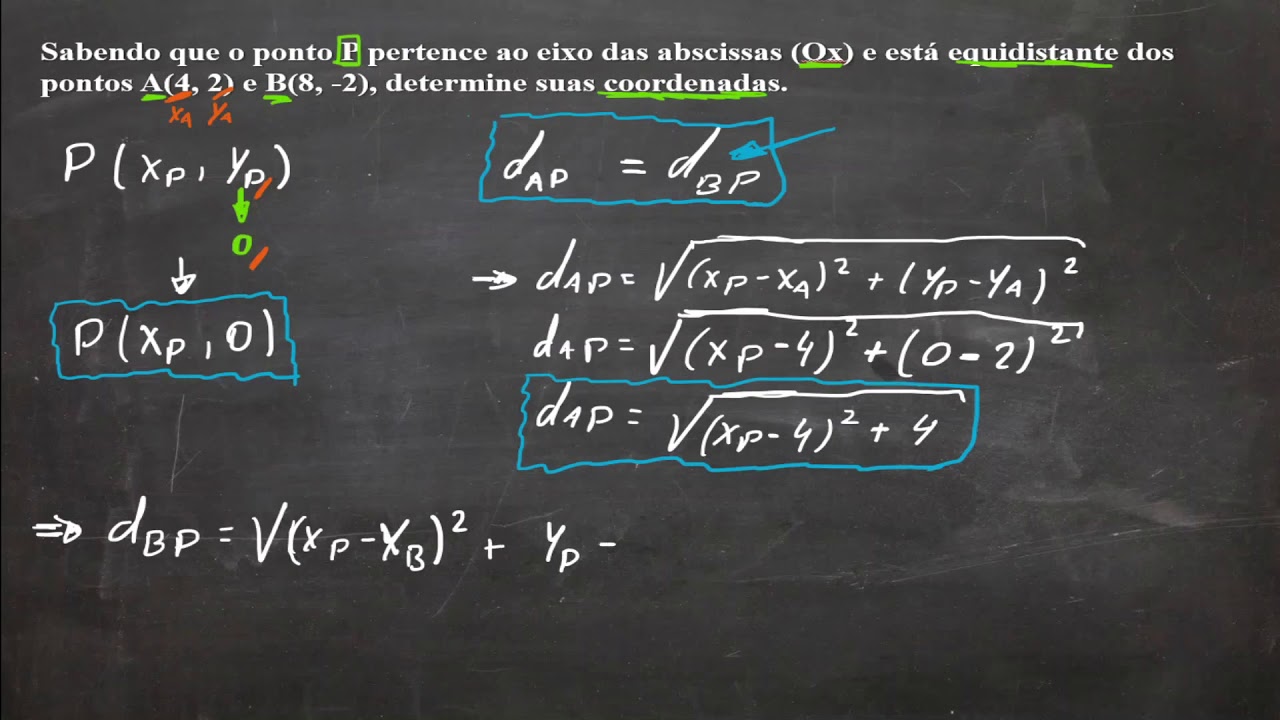 Sabendo que o ponto P pertence ao eixo das abscissas (Ox) e está equidistante dos
pontos A(4, 2) e B(8, -2), determine suas coordenadas.
x_A y_A
P(x_P, y_P)
0
P(x_P, 0)
d_AP = d_BP
⇒ d_AP = √(x_P - x_A)² + (y_P - y_A)²
d_AP = √(x_P - 4)² + (0 - 2)²
d_AP = √(x_P - 4)² + 4
⇒ d_BP = √(x_P - x_B)² + y_P -